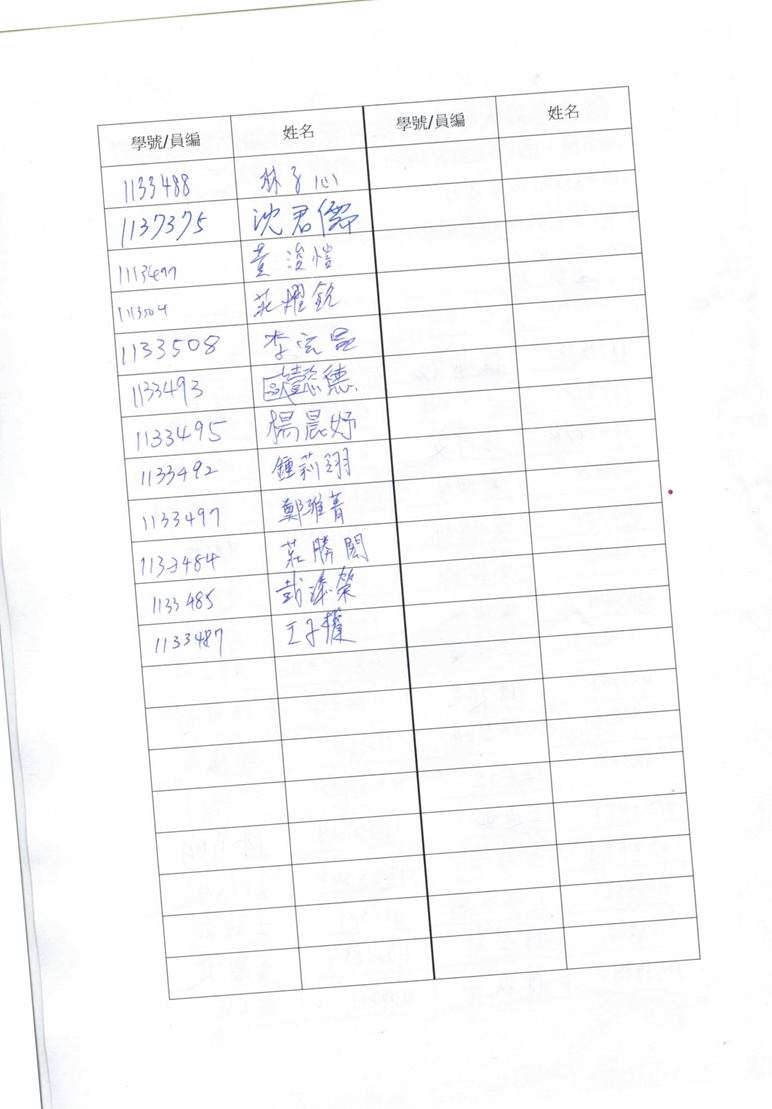 學號/員編 姓名 學號/員編 姓名
1133488 林子心
1137375 沈君儒
1113497 黃浚愷
1113504 莊耀銳
1133508 李宏昱
1133493 歐懿德
1133495 楊晨妤
1133492 鍾莉翊
1133497 鄭雅菁
1133484 莊勝閎
1133485 榮
1133487 王子